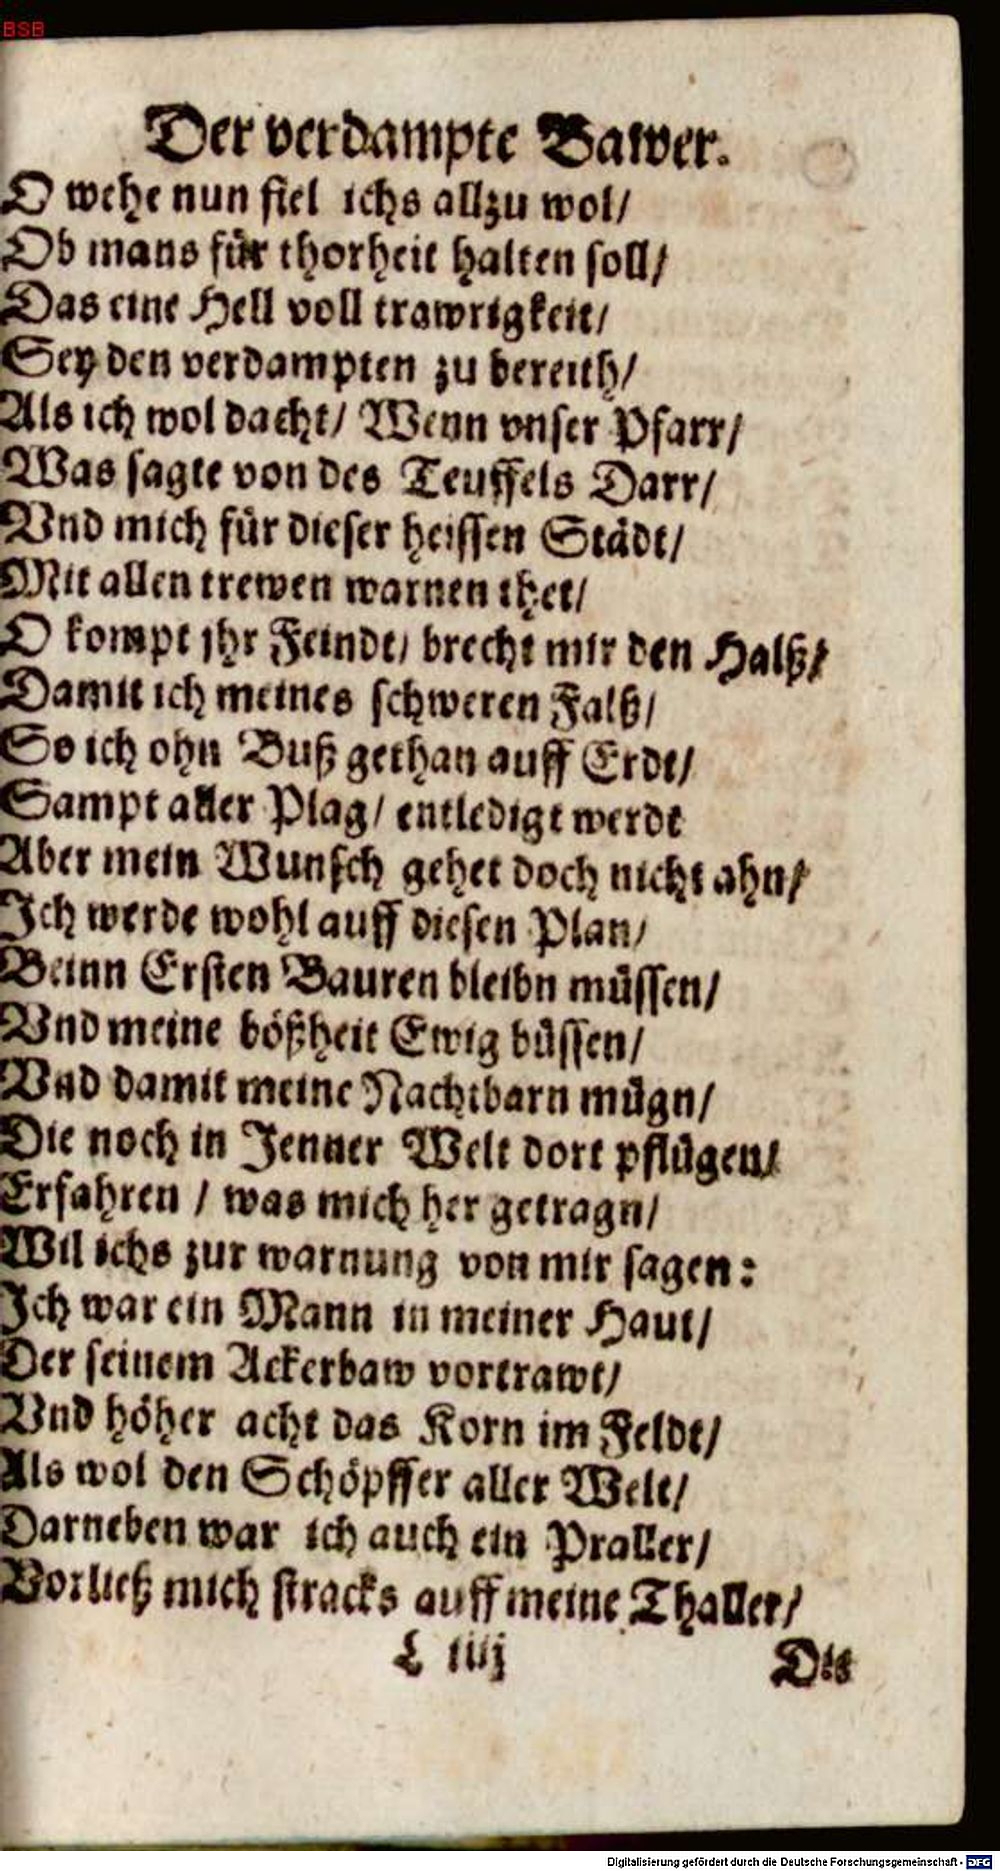 BSB
Der verdampte Bawer.
O wehe nun fiel ichs allzu wol/
Ob mans für thorheit halten soll/
Das eine Hell voll trawrigkeit/
Sey den verdampten zu bereith/
Als ich wol dacht/ Wenn vnser Pfarr/
Was sagte von des Teuffels Darr/
Vnd mich für dieser heissen Städt/
Mit allen trewen warnen thet/
O kompt jhr Feindt/ brecht mir den Halß/
Damit ich meines schweren Falß/
So ich ohn Buß gethan auff Erdt/
Sampt aller Plag/ entledigt werdt
Aber mein Wunsch gehet doch nicht ahn/
Ich werde wohl auff diesen Plan/
Beinn Ersten Bauren bleibn müssen/
Vnd meine bößheit Ewig büssen/
Vnd damit meine Nachtbarn mügn/
Die noch in Jenner Welt dort pflügen/
Erfahren / was mich her getragn/
Wil ichs zur warnung von mir sagen:
Ich war ein Mann in meiner Haut/
Der seinem Ackerbaw vortrawt/
Vnd höher acht das Korn im Feldt/
Als wol den Schöpffer aller Welt/
Darneben war ich auch ein Praller/
Vorließ mich stracks auff meine Thaller/
L iiij
Die
Digitalisierung gefördert durch die Deutsche Forschungsgemeinschaft - DFG